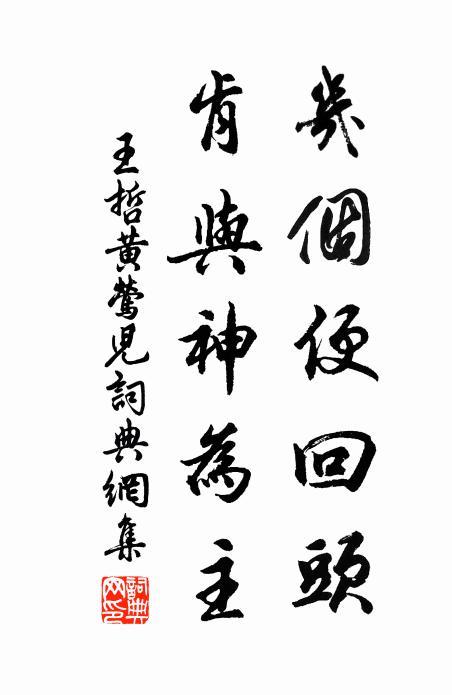 幾個便回頭
肯與神為主
王哲黃鶯兒詞典網集
詞典網印